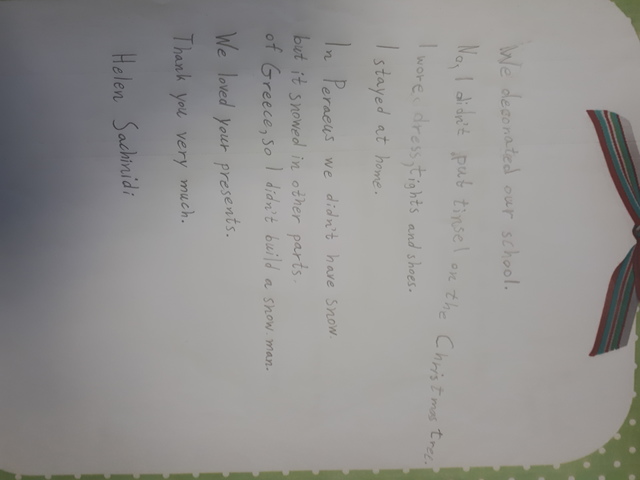 We deconated our school.
No, I didn't put tinsel on the Christmas tree.
I wore dress, tights and shoes.
I stayed at home.
In Peraeus we didn't have snow.
but it snowed in other parts.
of Greece, so I didn't build a snow man.
We loved your presents.
Thank you very much.
Helen Sachinidi